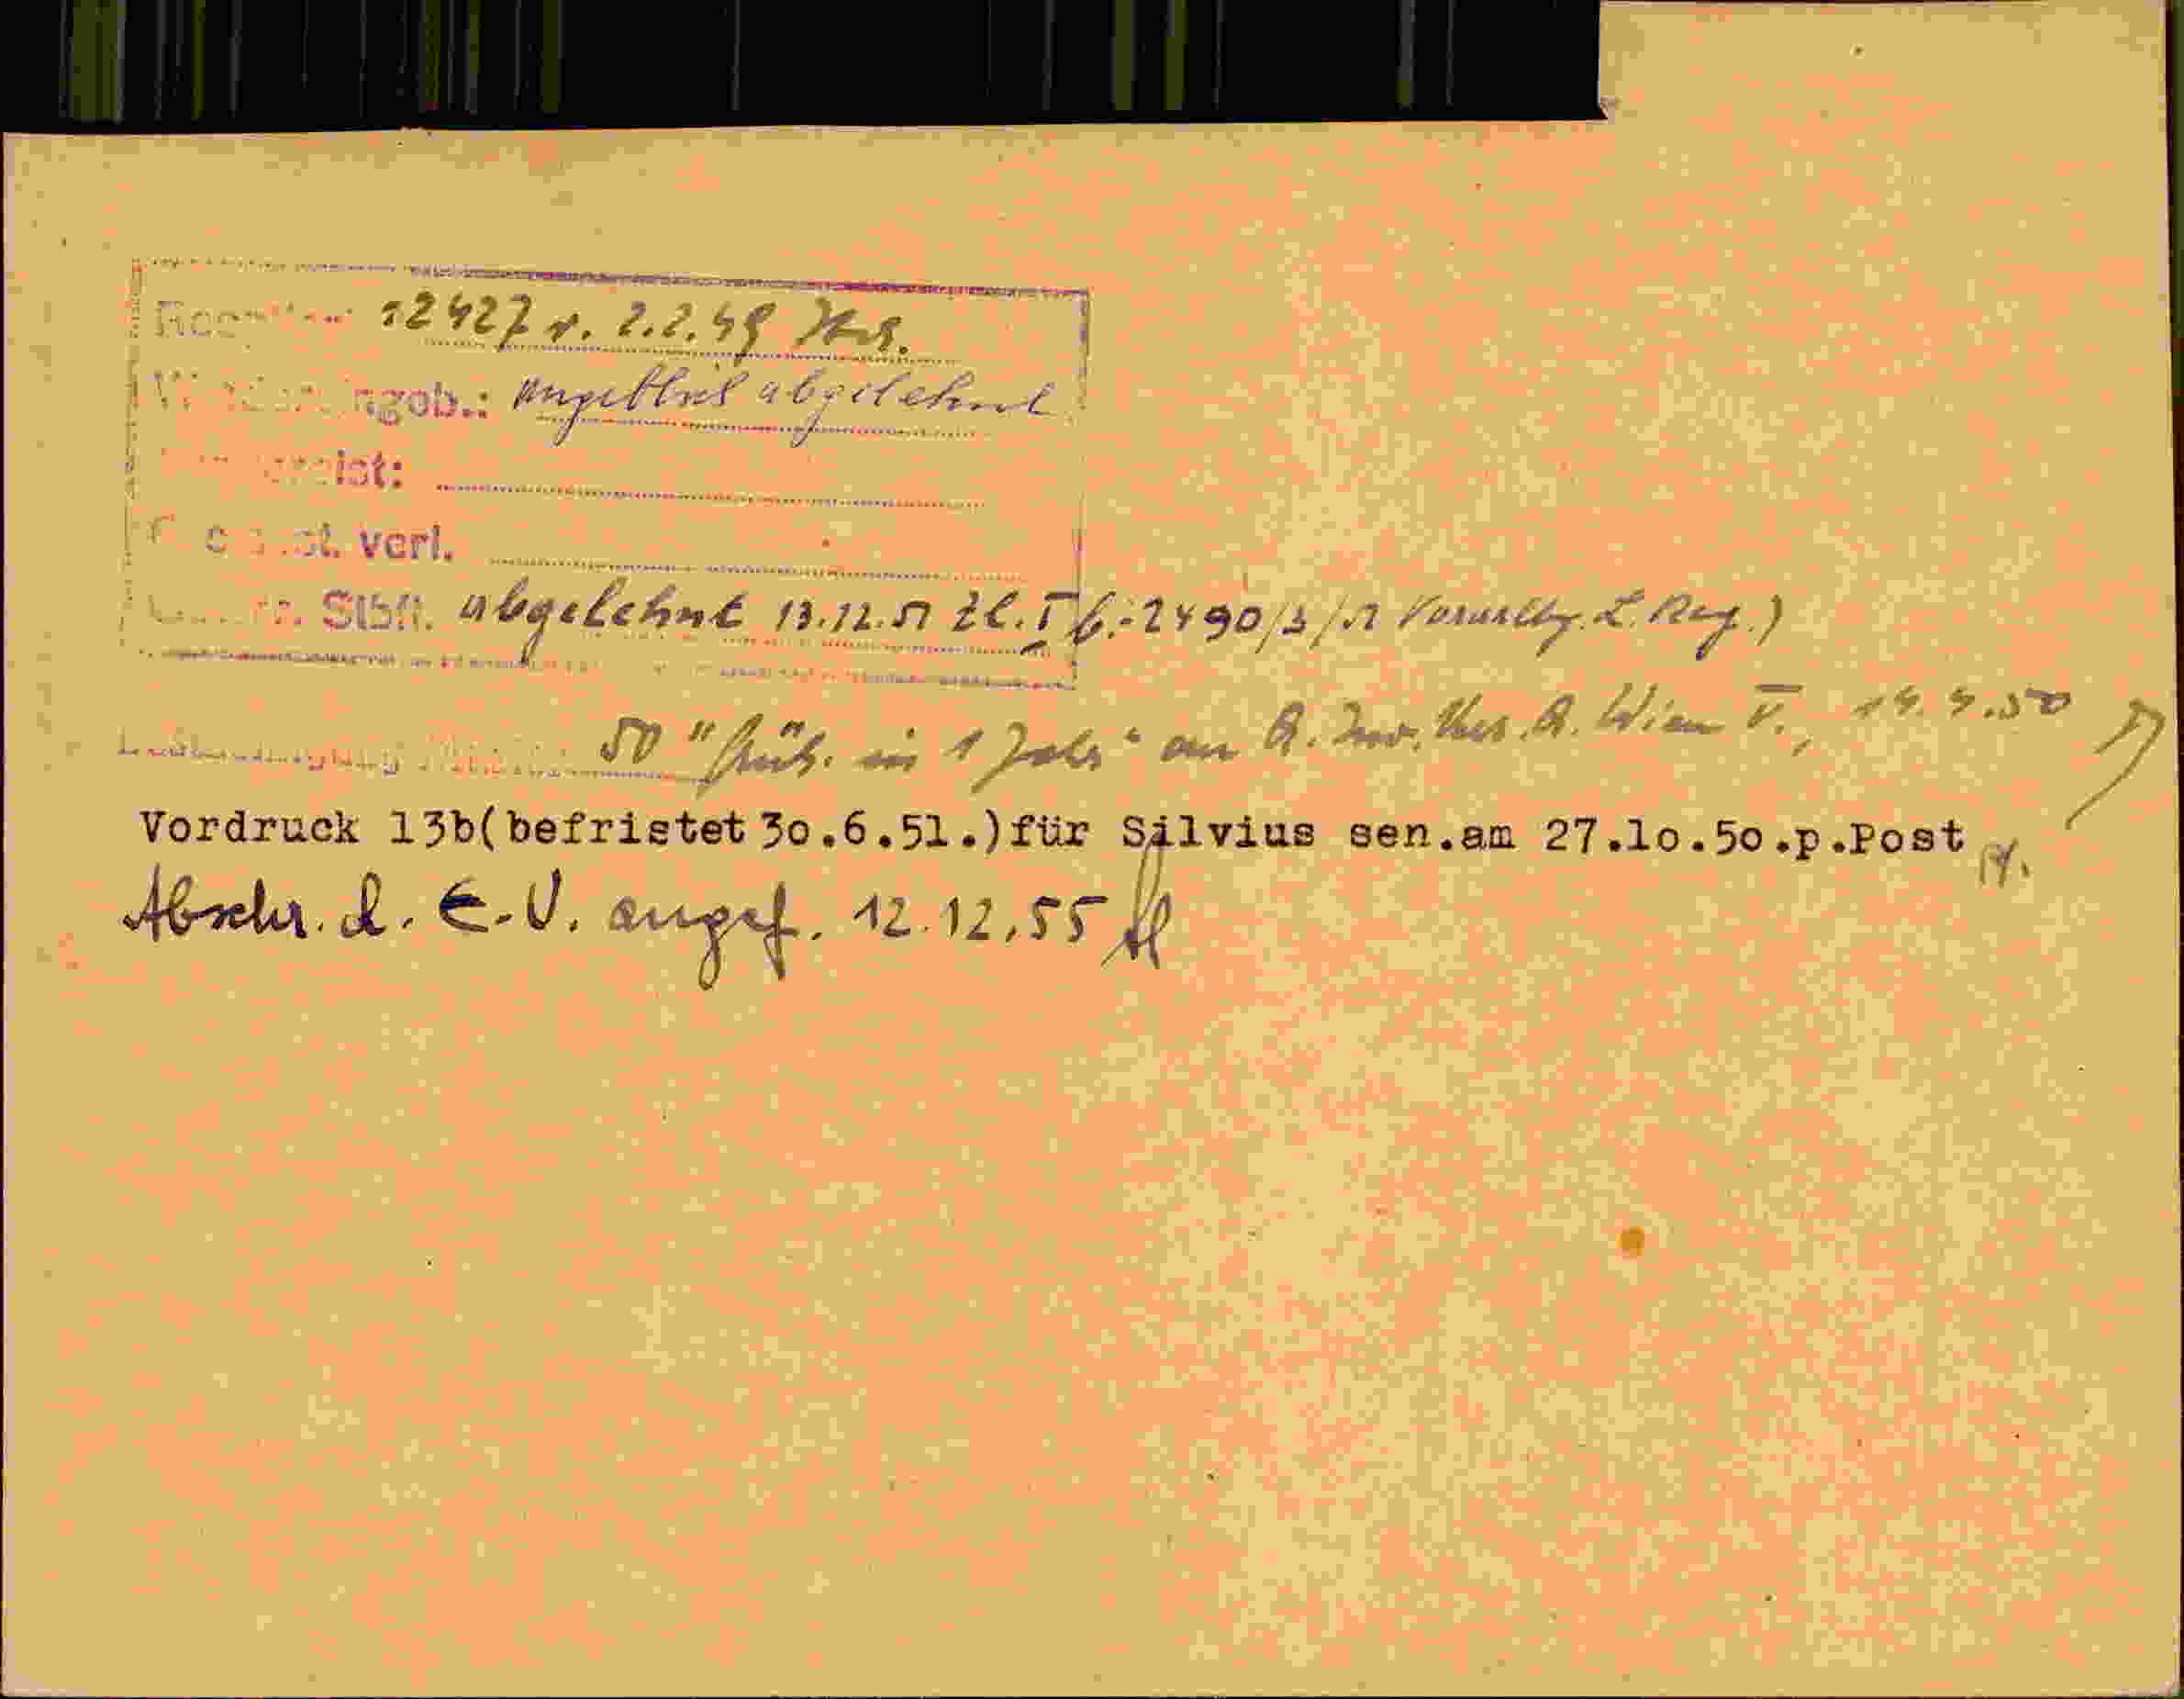 12427 v. 2.2.49
angeblich abgelehnt
verl.
Stbft. abgelehnt 13.12.51 Zl. I b.-2490/3/51 Vorarlbg. L. Reg.)
50 "früh. in 1 Jahr" an A. Inv. Wien V., 14.4.50
Vordruck 13b(befristet 3o.6.51.)für Silvius sen.am 27.lo.5o.p.Post
Abschr. d. E.-V. angef. 12.12.55